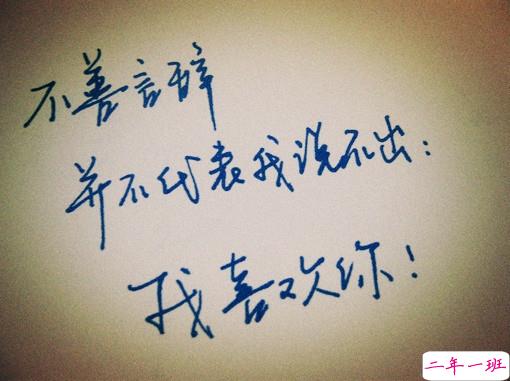 不善言辞
并不代表我说不出:
我喜欢你!
二年一班